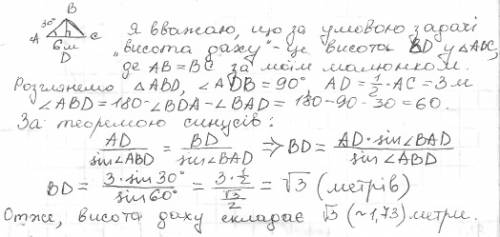 B
30°
A 6м C
D
Я вважаю, що за умовою задачі
"висота даху" - це висота BD у △ABC,
де AB = BC за моїм малюнком.
Розглянемо △ABD, ∠ADB = 90°, AD = 1/2 · AC = 3 м
∠ABD = 180 - ∠BDA - ∠BAD = 180 - 90 - 30 = 60.
За теоремою синусів:
AD/sin∠ABD = BD/sin∠BAD ⇒ BD = AD · sin∠BAD/sin∠ABD
BD = 3 · sin 30°/sin 60° = (3 · 1/2)/(√3/2) = √3 (метрів)
Отже, висота даху складає √3 (~1,73) метри.